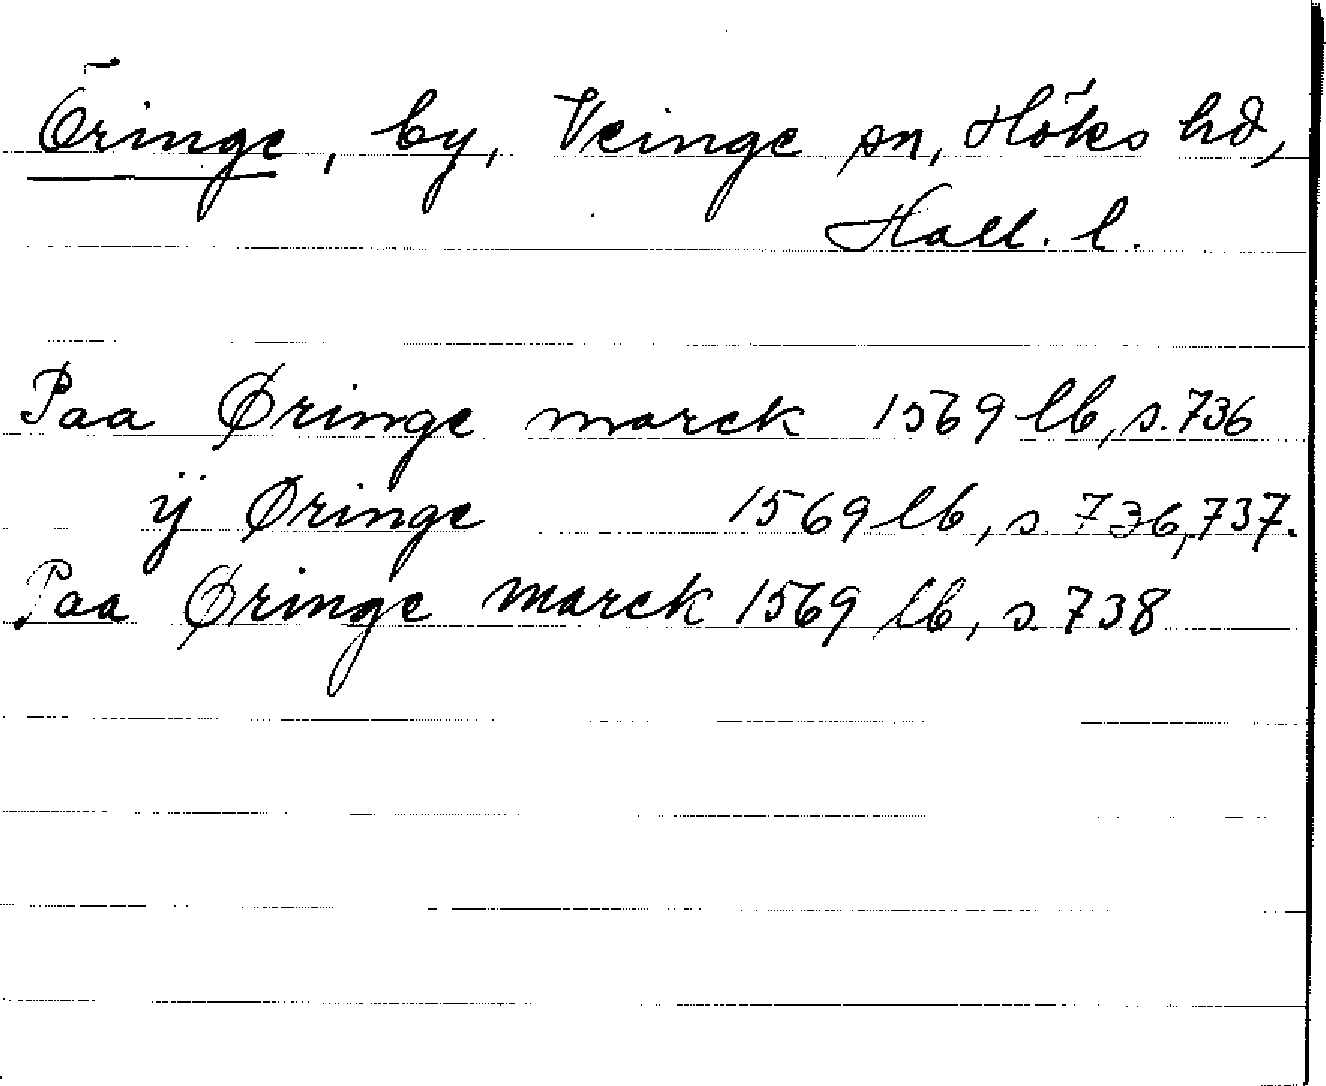 Öringe, by, Veinge sn, Höks hd,
Hall. l.
Paa Øringe marck 1569 lb, s. 736
ÿ Øringe 1569 lb, s. 736, 737.
Paa Øringe marck 1569 lb, s. 738